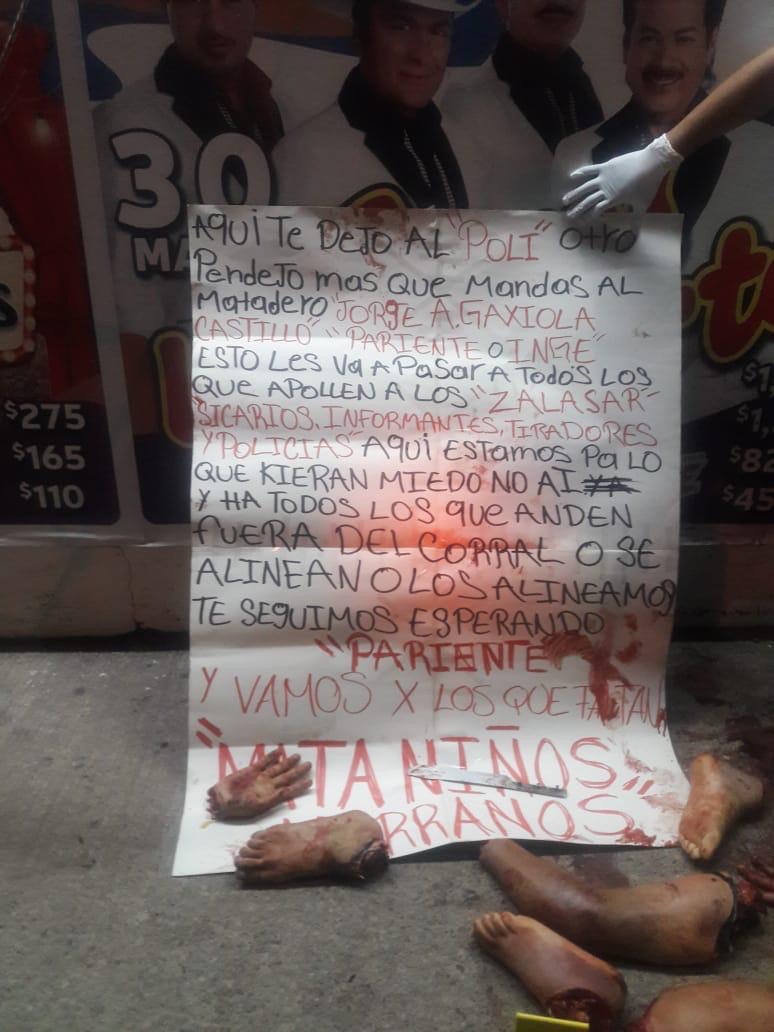 30
MA
$275
$165
$110
AQUI TE DEJO AL "POLI" OTRO
PENDEJO MAS QUE MANDAS AL
MATADERO "JORGE A. GAXIOLA
CASTILLO" "PARIENTE O INGE"
ESTO LES VA A PASAR A TODOS LOS
QUE APOLLEN A LOS "ZALASAR"
"SICARIOS, INFORMANTES, TIRADORES
Y POLICIAS" AQUI ESTAMOS PA LO
QUE KIERAN MIEDO NO AI
Y HA TODOS LOS QUE ANDEN
FUERA DEL CORRAL O SE
ALINEAN O LOS ALINEAMOS
TE SEGUIMOS ESPERANDO
"PARIENTE
Y VAMOS X LOS QUE FALTAN
"MATA NIÑOS"